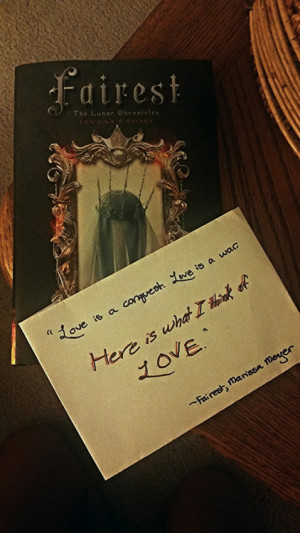 Fairest
The Lunar Chronicles
LEVANA'S STORY
"Love is a conquest. Love is a war.
Here is what I think of
LOVE."
~Fairest, Marissa Meyer